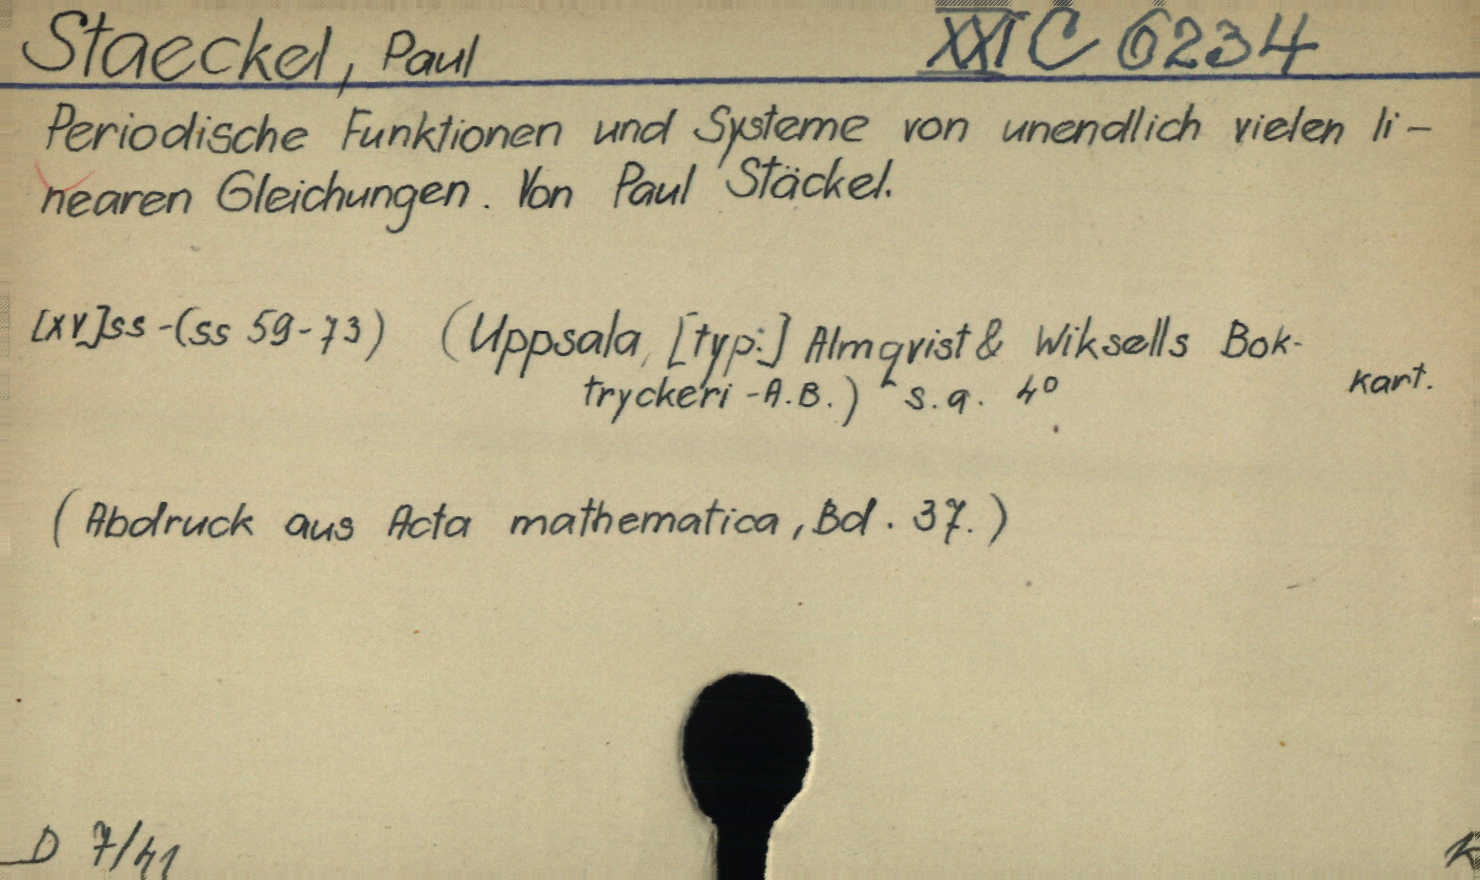 Staeckel, Paul XXI C 6234
Periodische Funktionen und Systeme von unendlich vielen li-
nearen Gleichungen. Von Paul Stäckel.
[XV]ss-(ss 59-73) (Uppsala, [typ:] Almqvist & Wiksells Bok-
tryckeri-A.B.) s.a. 4° kart.
(Abdruck aus Acta mathematica, Bd. 37.)
D 7/41